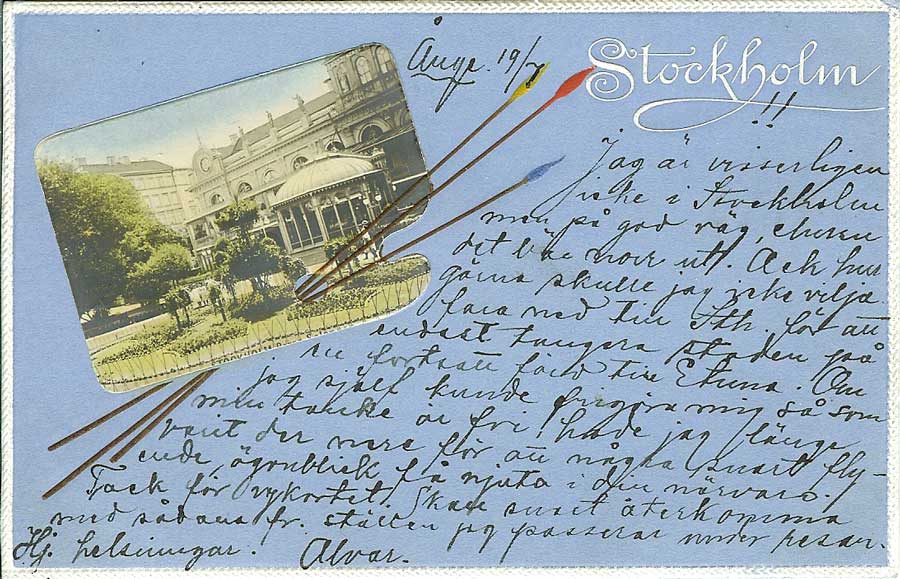 Ånge. 19/7
Stockholm
!!
Jag är visserligen
icke i Stockholm
men på god väg, ehuru
det bär norr ut. Ack hur
gärna skulle jag icke vilja
fara ned till Sth. för att
endast tangera staden på
en fortsatt färd till Etuna. Om
jag själf kunde frigöra mig så som
min tanke är fri, hade jag länge
varit der nere för att några snart fly-
ende ögonblick få njuta i din närvaro.
Tack för vykortet! Skall snart återkomma
med sådana fr. ställen jag passerar under resan.
Hj. helsningar. Alvar.